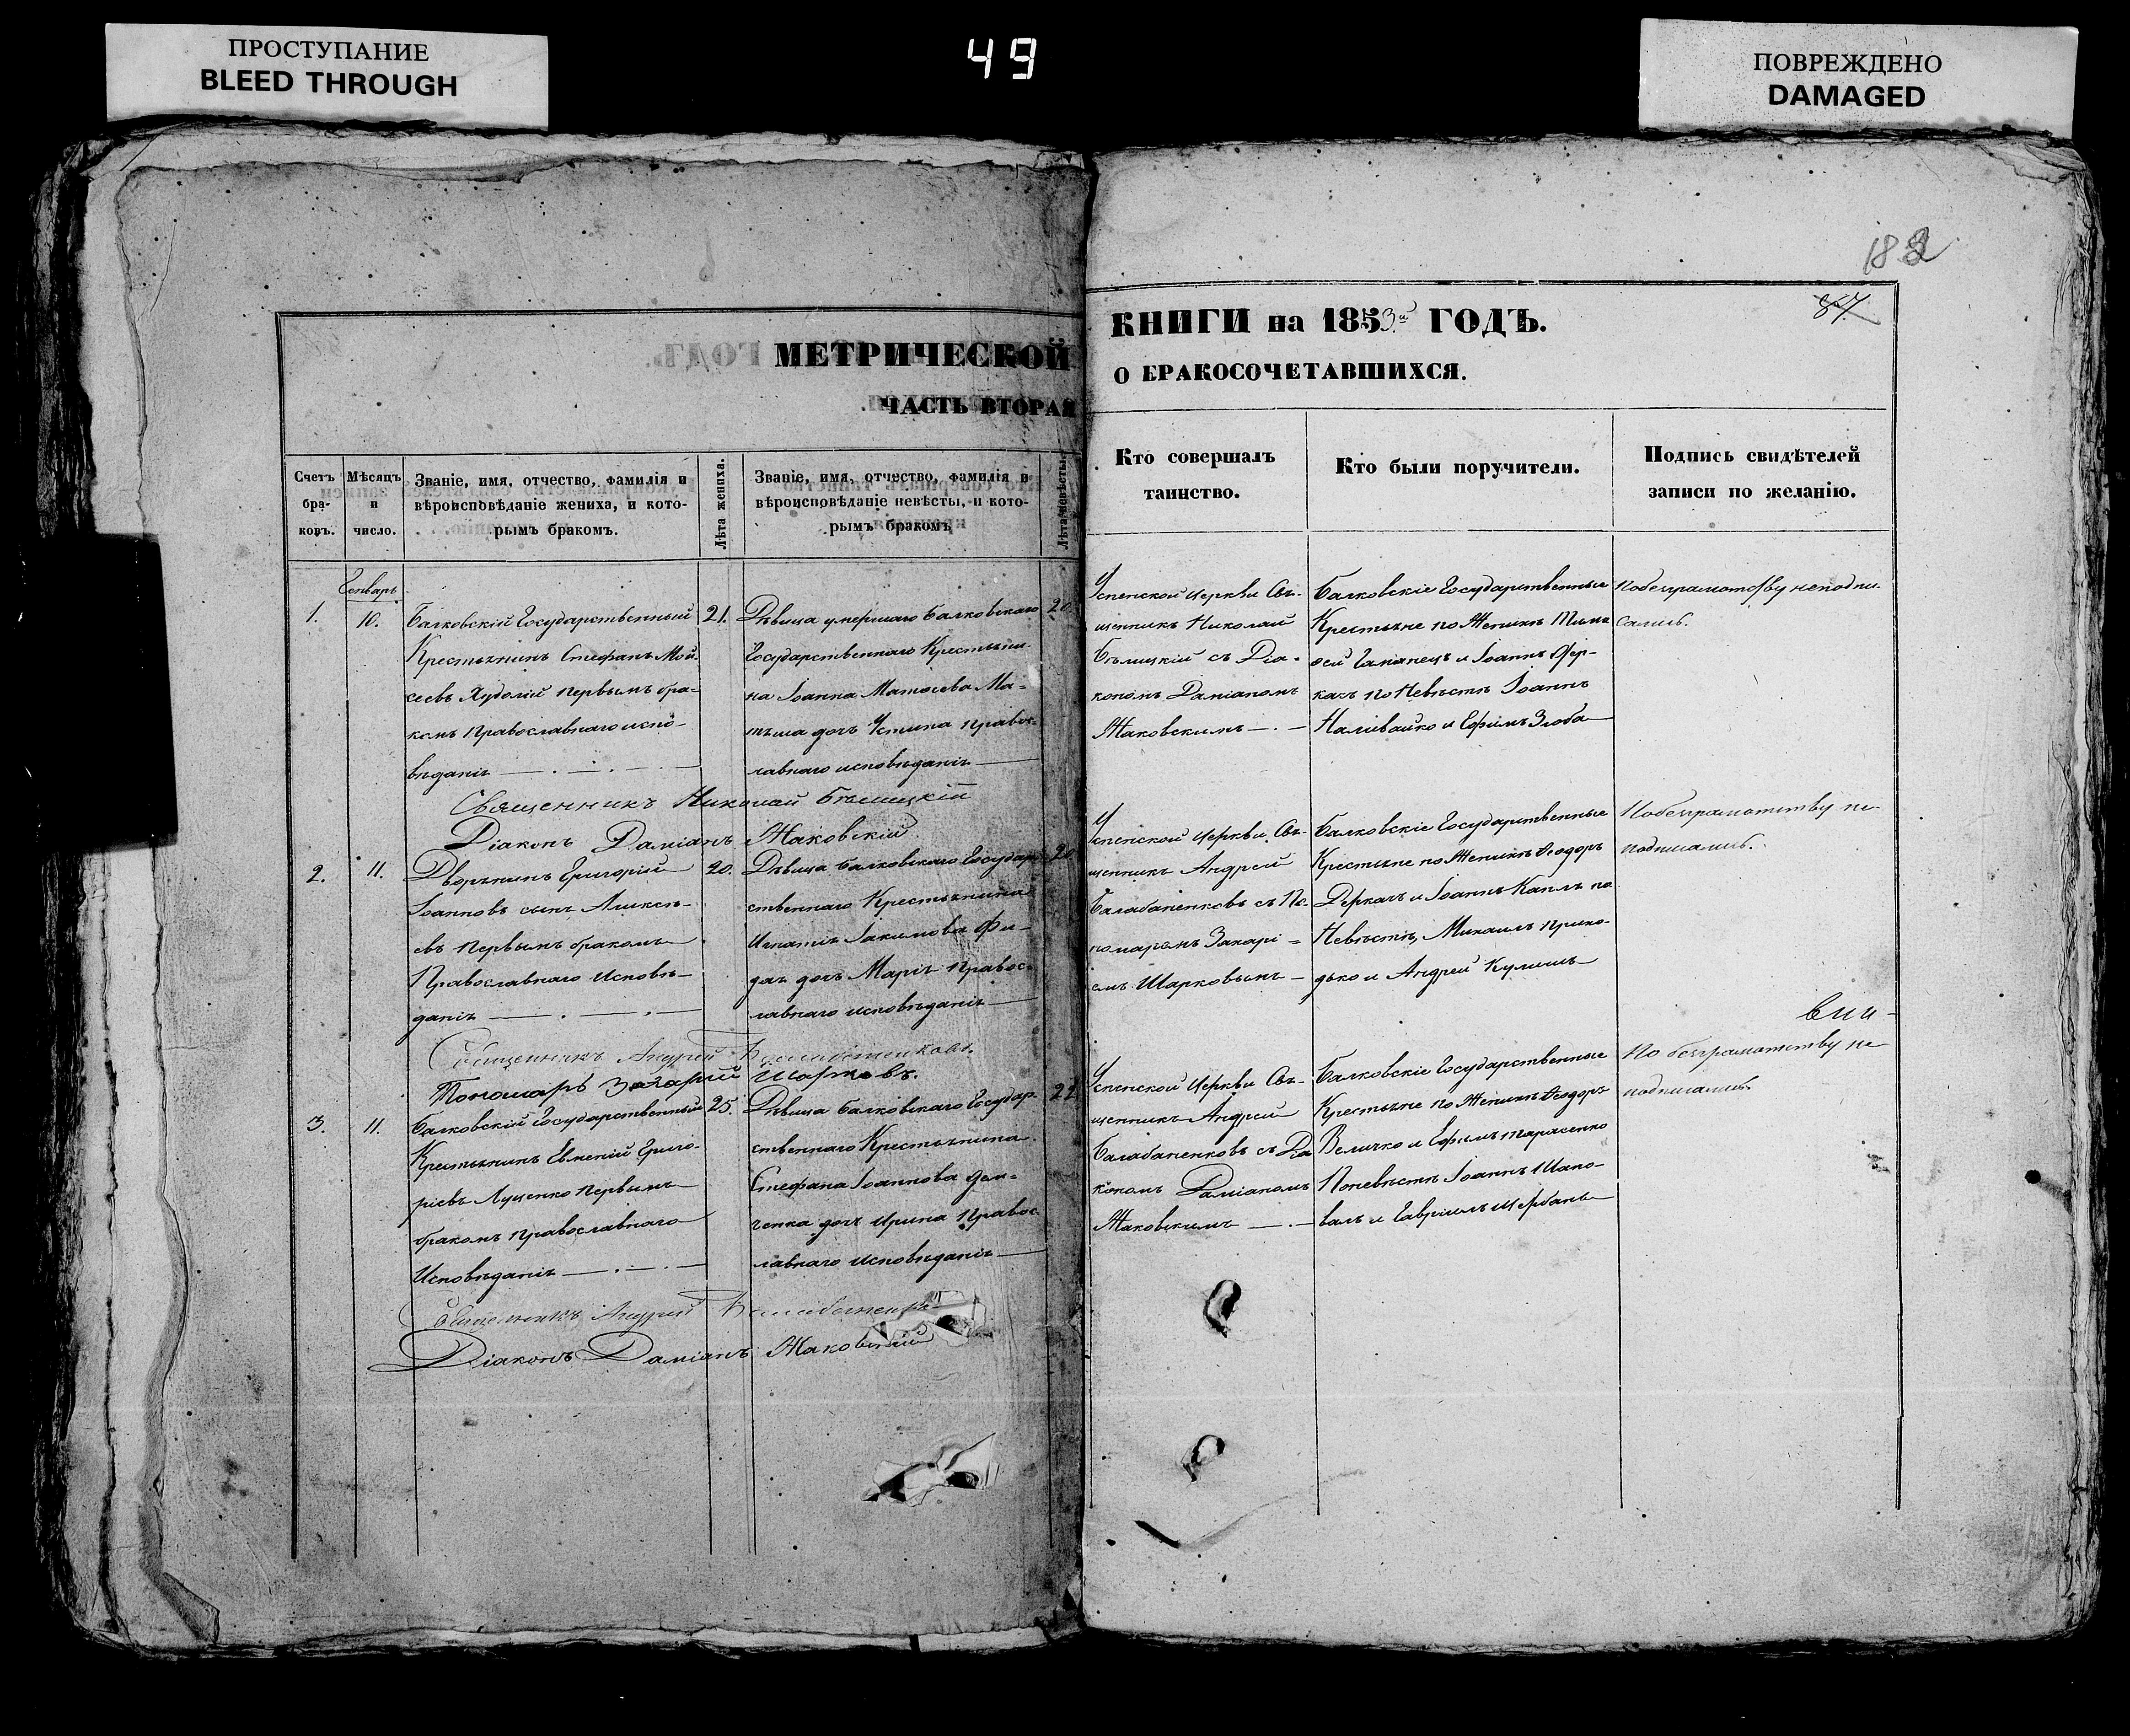 ПРОСТУПАНИЕ
BLEED THROUGH
49
ПОВРЕЖДЕНО
DAMAGED
182
87
МЕТРИЧЕСКОЙ
ЧАСТЬ ВТОРАЯ
КНИГИ на 1853й ГОДЪ.
О БРАКОСОЧЕТАВШИХСЯ.
Счетъ бра-ковъ.
Мѣсяцъ и число.
Званіе, имя, отчество, фамилія и
вѣроисповѣданіе жениха, и кото-
рымъ бракомъ.
Лѣта жениха.
Званіе, имя, отчество, фамилія и
вѣроисповѣданіе невѣсты, и кото-
рымъ бракомъ
Лѣта невѣсты.
Кто совершалъ
таинство.
Кто были поручители.
Подпись свидѣтелей
записи по желанію.
Генварь
1.
10.
Балковскій Государственный
Крестьянинъ Стефанъ Мой-
сеевъ Худолій первымъ бра-
комъ Православнаго испо-
вѣданія
21.
Дѣвица умершаго Балковскаго
Государственнаго Крестьяни-
на Іоанна Матѳеева Ма-
дочь Устина Правос-
лавнаго исповѣданія
20
Успенской Церкви Свя-
щенникъ Николай
Бѣлицкій съ Діа-
кономъ Даміаномъ
Жаковскимъ
Балковскіе Государственные
Крестьяне по Женихѣ Тимо
ѳей и Іоаннъ Дер-
качъ по Невѣстѣ Іоаннъ
Наливайко и Ефимъ Злоба
По безграмотству неподпи-
сались.
Священникъ Николай Бѣлицкій
Діаконъ Даміанъ Жаковскій
2.
11.
Дворянинъ Григорій
Іоанновъ сынъ Алексѣ-
евъ первымъ бракомъ
Православнаго Исповѣ-
данія
20.
Дѣвица Балковскаго Государ-
ственнаго Крестьянина
Игнатія Іакимова
дочь Марія Правос-
лавнаго исповѣданія
20
Успенской Церкви Свя-
щенникъ Андрей
Балабаненковъ съ По-
номаремъ Захарі-
емъ Шарковымъ
Балковскіе Государственные
Крестьяне по Женихѣ Ѳеодоръ
Деркачъ и Іоаннъ по
Невѣстѣ, Михаилъ Прихо-
дько и Андрей Кулишъ
По безграмотству не-
подписались.
Священникъ Андрей Балабаненковъ.
Пономарь Захарій Шарковъ.
3.
11.
Балковскій Государственный
Крестьянинъ Евменій Григо-
ріевъ Луценко первымъ
бракомъ Православнаго
Исповѣданія
25.
Дѣвица Балковскаго Государ-
ственнаго Крестьянина
Стефана Іоаннова Дем-
ченка дочь Ирина Правос-
лавнаго исповѣданія
22
Успенской Церкви Свя-
щенникъ Андрей
Балабаненковъ съ Діа
кономъ Даміаномъ
Жаковскимъ
Балковскіе Государственные
Крестьяне по Женихѣ Ѳеодоръ
Величко и Ефимъ Тарасенко
По невѣстѣ Іоаннъ Шапо-
валъ и Гавріилъ Щербань
По безграмотству не
подписались.
Священникъ Андрей
Діаконъ Даміанъ Жаковскій